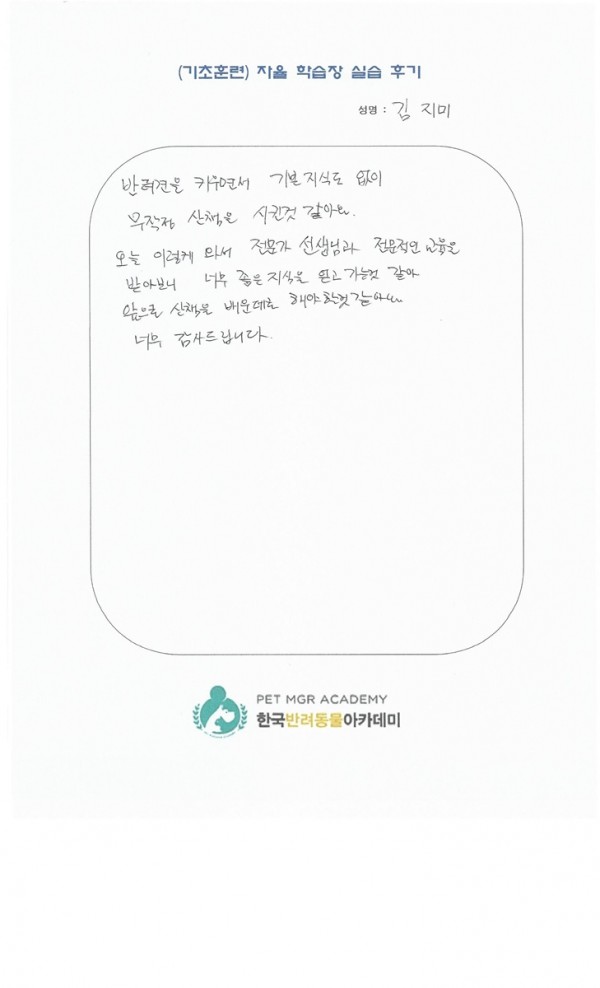 (기초훈련) 자율 학습장 실습 후기
성명 : 김 지미
반려견을 키우면서 기본지식도 없이
무작정 산책을 시킨것 같아요.
오늘 이렇게 와서 전문가 선생님과 전문적인 교육을
받아보니 너무 좋은지식을 얻고 가는것 같아
앞으로 산책을 배운데로 해야할것같아요
너무 감사드립니다.
PET MGR ACADEMY
한국반려동물아카데미